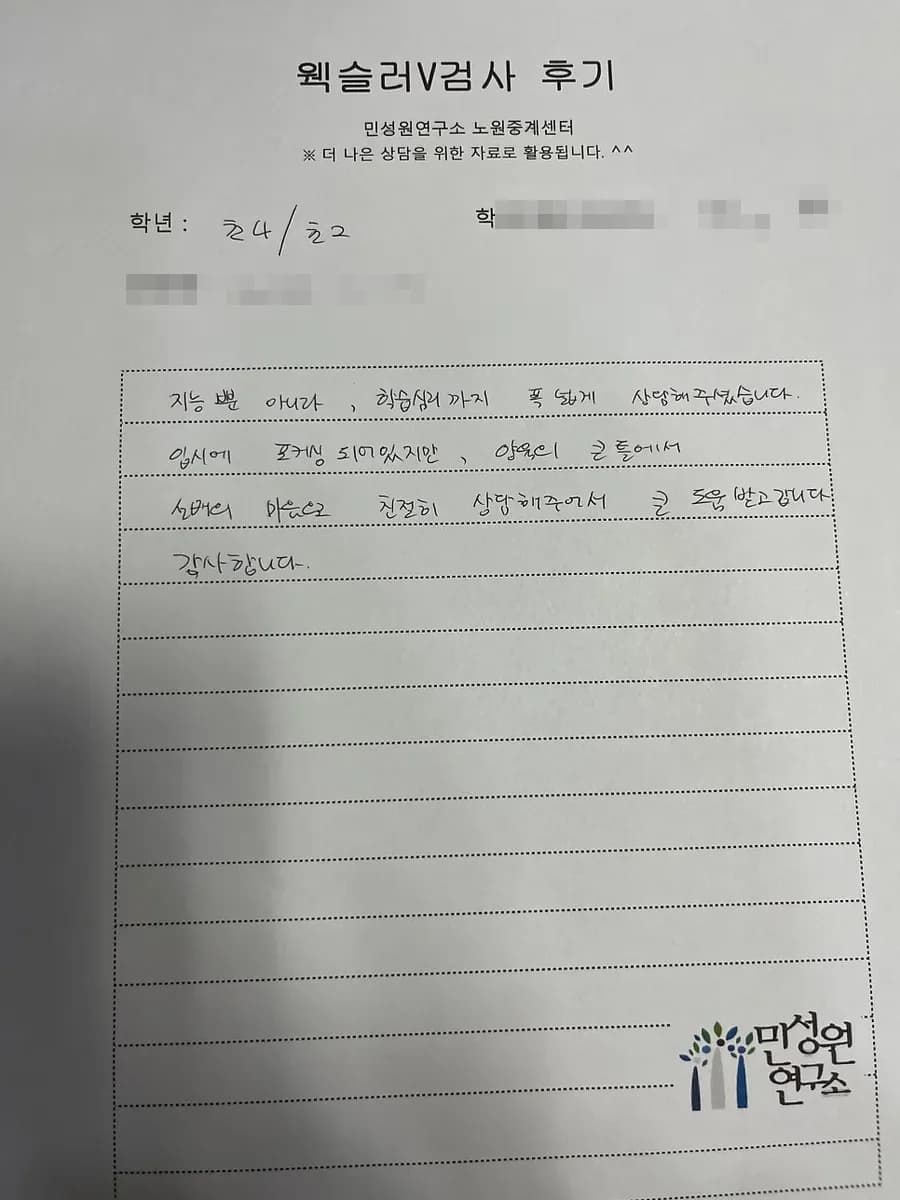 웩슬러V검사 후기
민성원연구소 노원중계센터
※ 더 나은 상담을 위한 자료로 활용됩니다. ^^
학년 : 초4/초2
학
지능 뿐 아니라, 학습심리까지 폭 넓게 상담해주셨습니다.
입시에 포커싱 되어있지만, 양육의 큰 틀에서
선배의 마음으로 친절히 상담해주어서 큰 도움 받고갑니다
감사합니다.
민성원
연구소